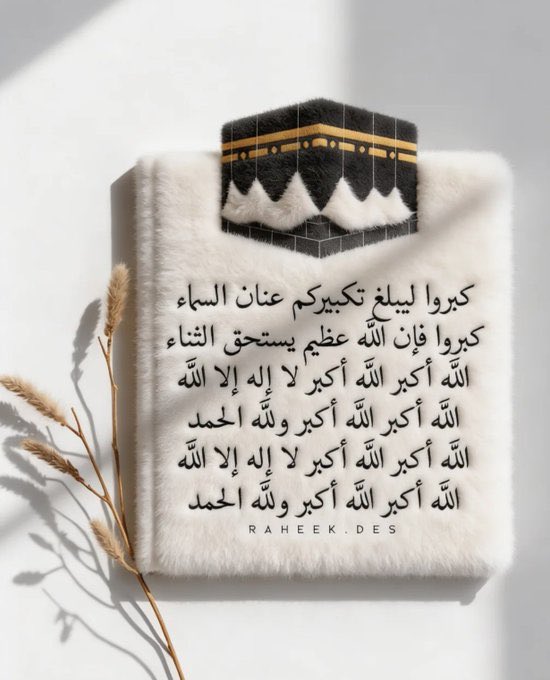 كبروا ليبلغ تكبيركم عنان السماء
كبروا فإن الله عظيم يستحق الثناء
الله أكبر الله أكبر لا إله إلا الله
الله أكبر الله أكبر ولله الحمد
الله أكبر الله أكبر لا إله إلا الله
الله أكبر الله أكبر ولله الحمد
RAHEEK.DES